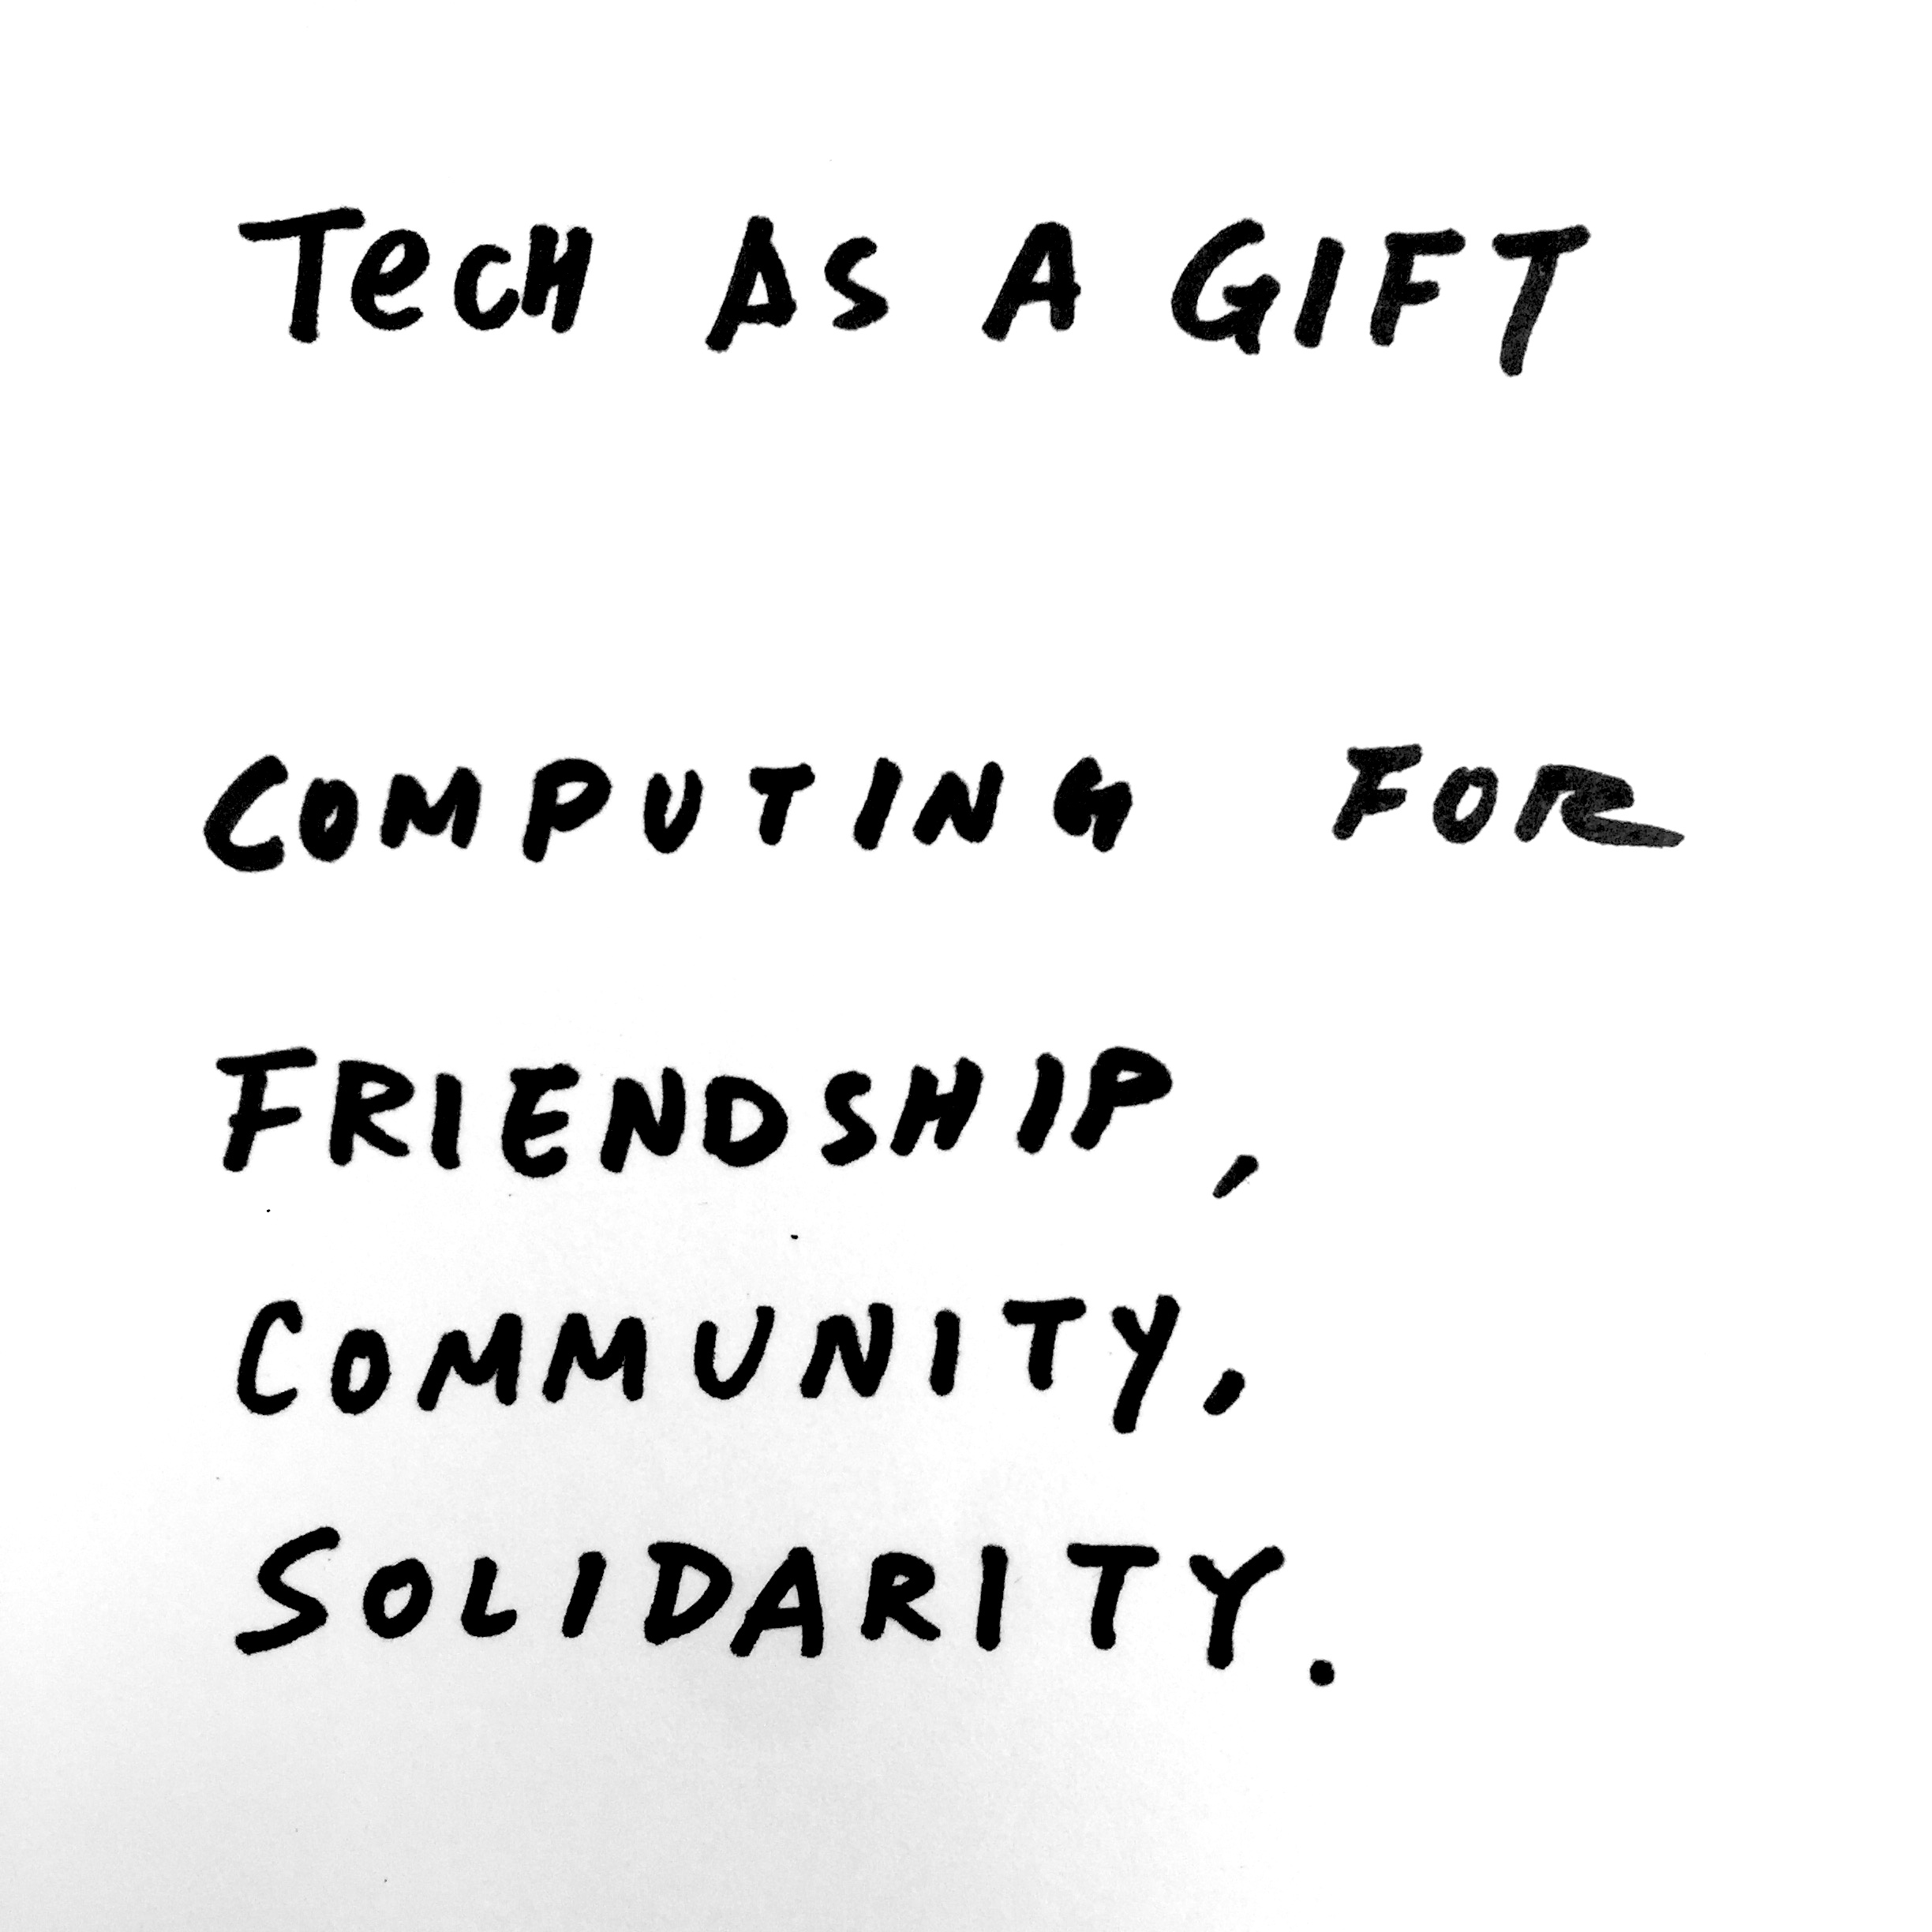 TecH AS A GIFT
COMPUTING FOR
FRIENDSHIP,
COMMUNITY,
SOLIDARITY.